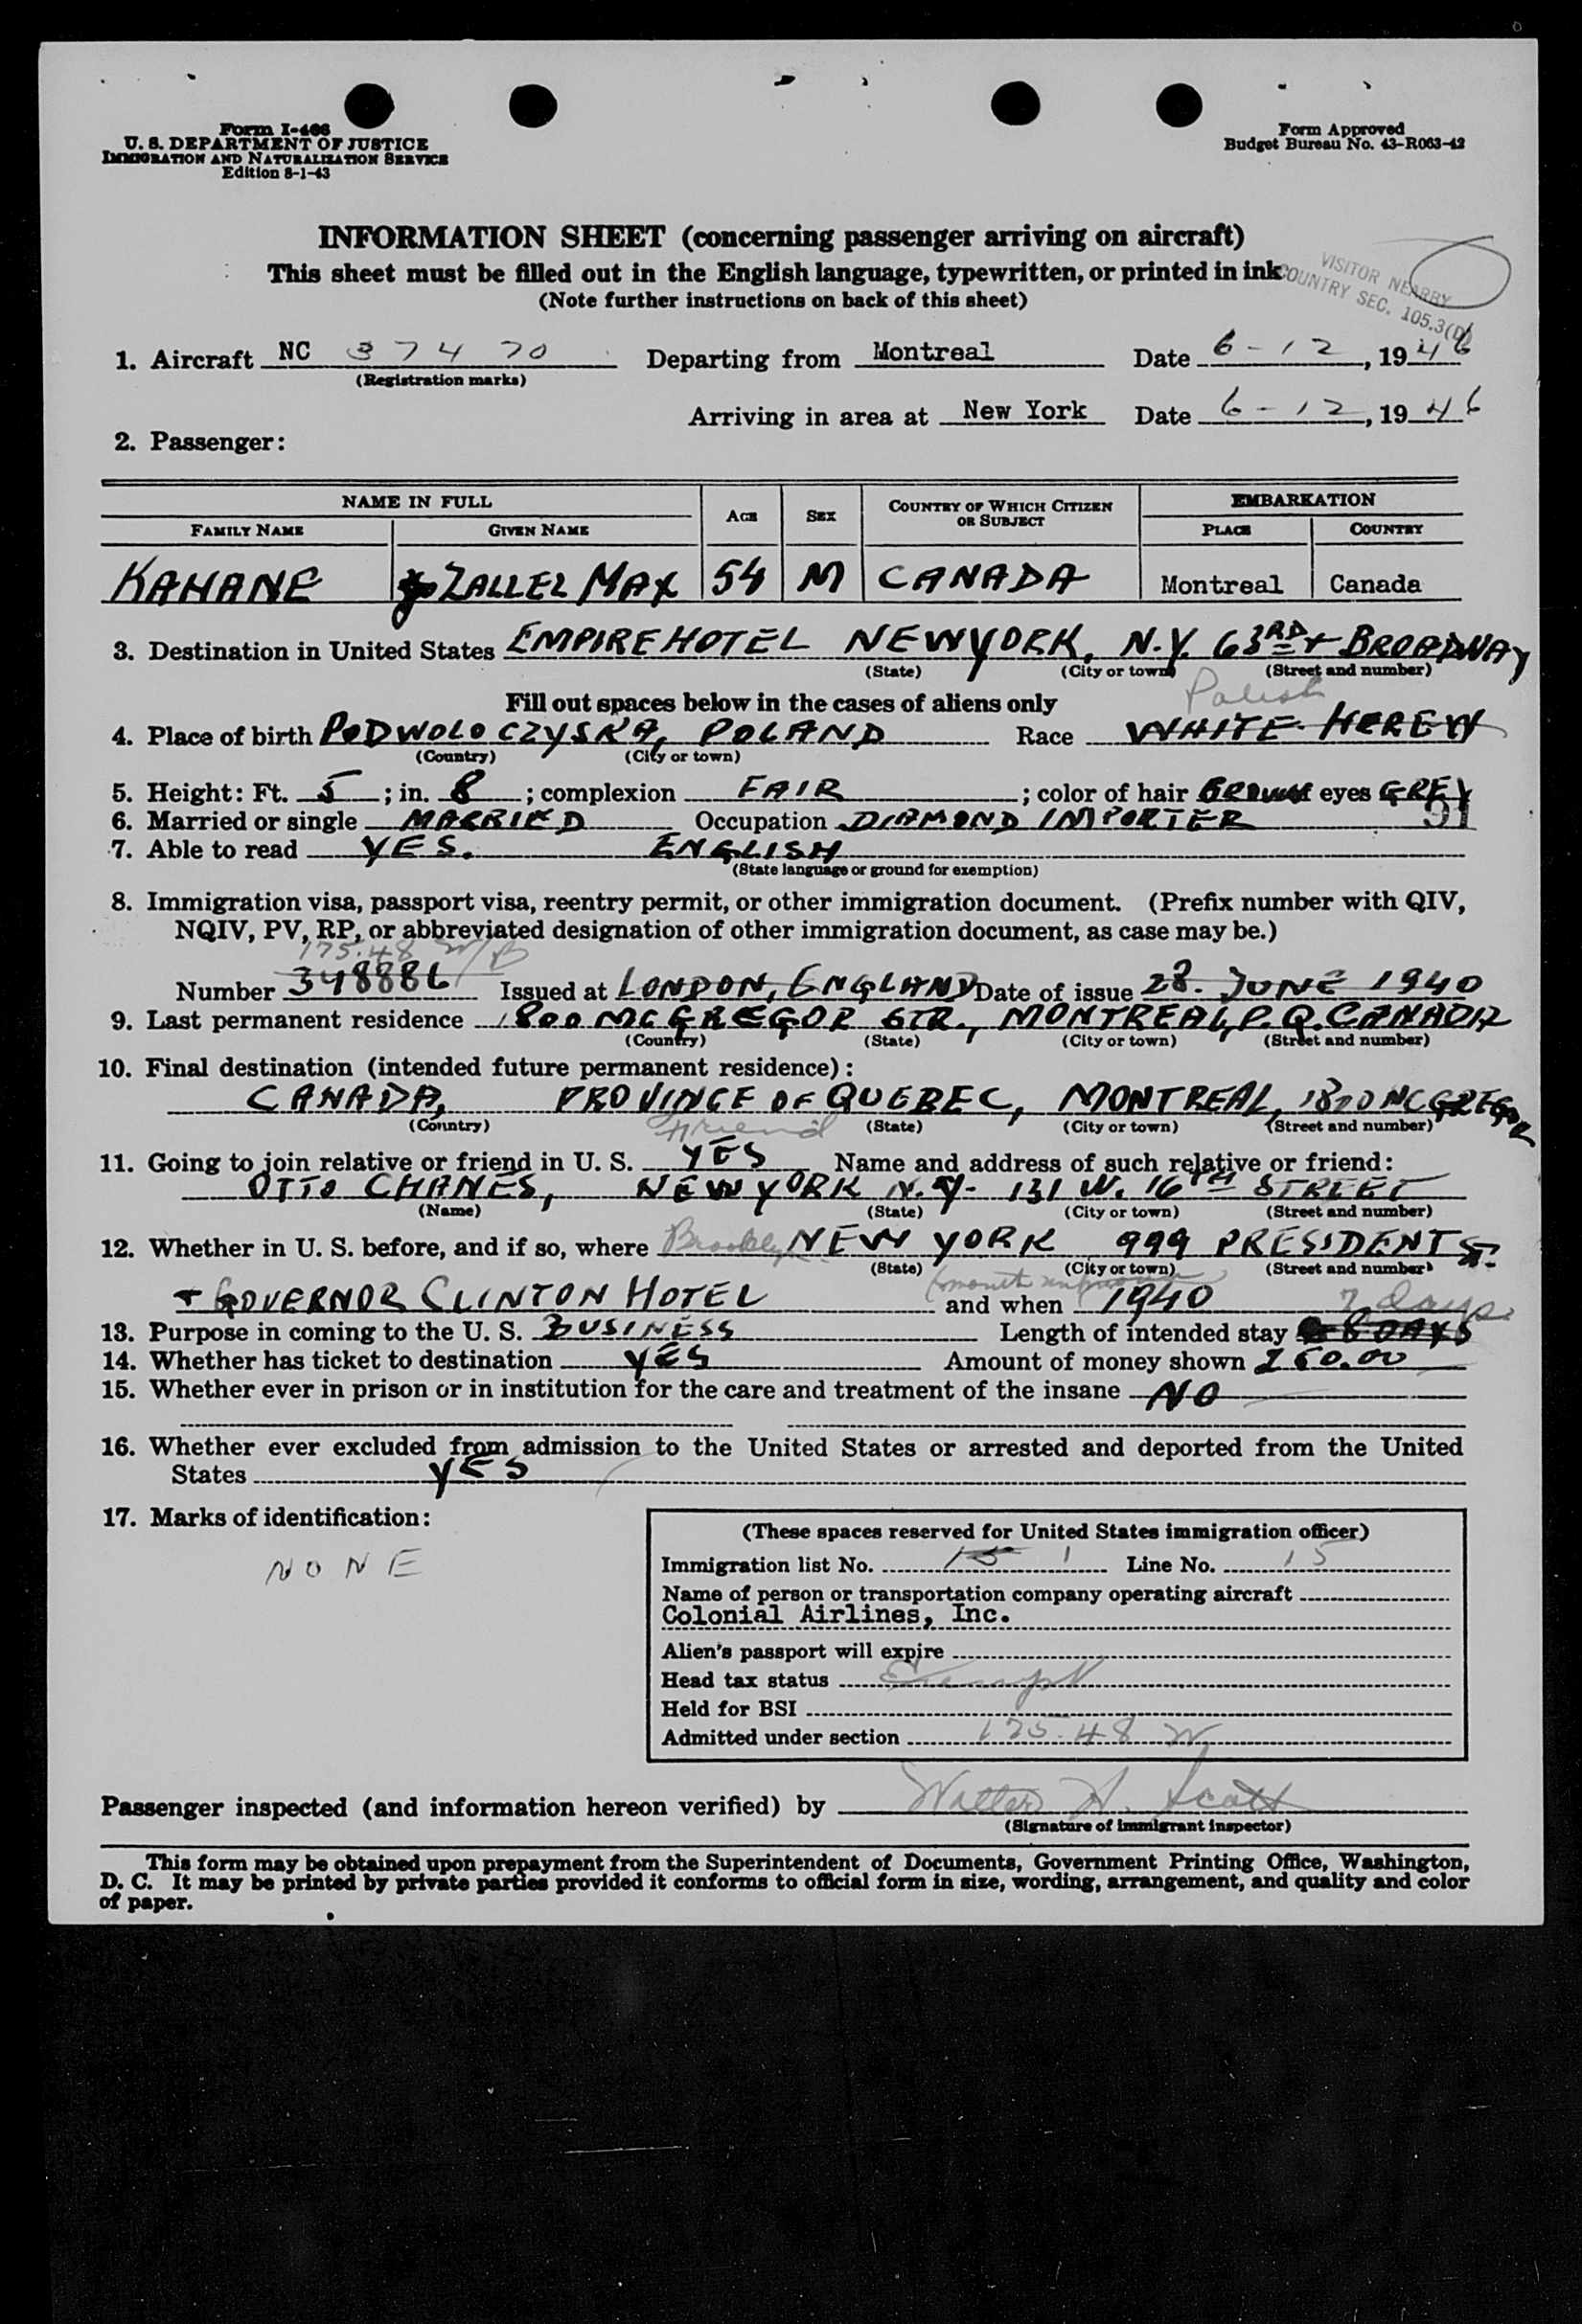 Form I-466
U. S. DEPARTMENT OF JUSTICE
IMMIGRATION AND NATURALIZATION SERVICE
Edition 8-1-43
Form Approved
Budget Bureau No. 43-R063-42
INFORMATION SHEET (concerning passenger arriving on aircraft)
This sheet must be filled out in the English language, typewritten, or printed in ink
(Note further instructions on back of this sheet)
VISITOR NEARBY
COUNTRY SEC. 105.3(D)
1. Aircraft NC 37470 Departing from Montreal Date 6-12, 1946
(Registration marks)
Arriving in area at New York Date 6-12, 1946
2. Passenger:
NAME IN FULL AGE SEX COUNTRY OF WHICH CITIZEN OR SUBJECT EMBARKATION
FAMILY NAME GIVEN NAME PLACE COUNTRY
KAHANE ZALLEL MAX 54 M CANADA Montreal Canada
3. Destination in United States EMPIRE HOTEL NEW YORK, N.Y. 63RD + BROADWAY
(State) (City or town) (Street and number)
Fill out spaces below in the cases of aliens only
Polish
4. Place of birth PODWOLOCZYSKA, POLAND Race WHITE HEREW
(Country) (City or town)
5. Height: Ft. 5; in. 8; complexion FAIR; color of hair BROWN eyes GREY
6. Married or single MARRIED Occupation DIAMOND IMPORTER 91
7. Able to read YES. ENGLISH
(State language or ground for exemption)
8. Immigration visa, passport visa, reentry permit, or other immigration document. (Prefix number with QIV,
NQIV, PV, RP, or abbreviated designation of other immigration document, as case may be.)
175.48
Number 348886 Issued at LONDON, ENGLAND Date of issue 28. JUNE 1940
9. Last permanent residence 1800 MCGREGOR STR., MONTREAL, P.Q. CANADA
(Country) (State) (City or town) (Street and number)
10. Final destination (intended future permanent residence):
CANADA, PROVINCE OF QUEBEC, MONTREAL, 1800 MCGREGOR
(Country) (State) (City or town) (Street and number)
Friend
11. Going to join relative or friend in U. S. YES Name and address of such relative or friend:
OTTO CHANES, NEW YORK N.Y. 131 W. 16TH STREET
(Name) (State) (City or town) (Street and number)
12. Whether in U. S. before, and if so, where Brooklyn NEW YORK 999 PRESIDENT ST.
(State) (City or town) (Street and number)
(month unknown)
+ GOVERNOR CLINTON HOTEL and when 1940
7 days
13. Purpose in coming to the U. S. BUSINESS Length of intended stay 8 DAYS
14. Whether has ticket to destination YES Amount of money shown 260.00
15. Whether ever in prison or in institution for the care and treatment of the insane NO
16. Whether ever excluded from admission to the United States or arrested and deported from the United
States YES
17. Marks of identification:
NONE
(These spaces reserved for United States immigration officer)
Immigration list No. 15 1 Line No. 15
Name of person or transportation company operating aircraft
Colonial Airlines, Inc.
Alien's passport will expire
Head tax status Exempt
Held for BSI
Admitted under section 175.48 W
Passenger inspected (and information hereon verified) by Walter H. Scott
(Signature of immigrant inspector)
This form may be obtained upon prepayment from the Superintendent of Documents, Government Printing Office, Washington,
D. C. It may be printed by private parties provided it conforms to official form in size, wording, arrangement, and quality and color
of paper.